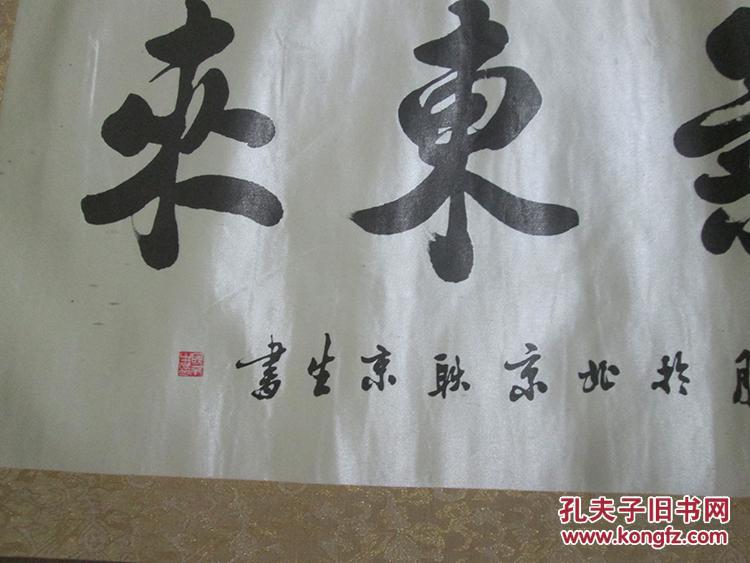 東來
於北京耿京生書
孔夫子旧书网
www.kongfz.com